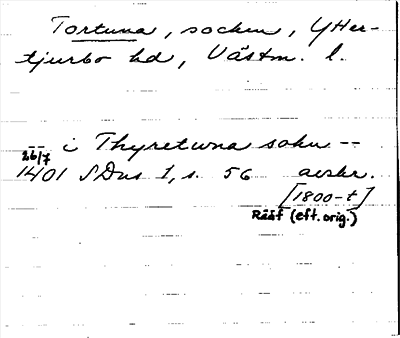 Tortuna, socken, YTter-
tjurbo hd, Västm. l.
i Thyretuna sokn --
26/7
1401 SDns 1, s. 56 avskr.
[1800-t]
Rääf (eft. orig.)